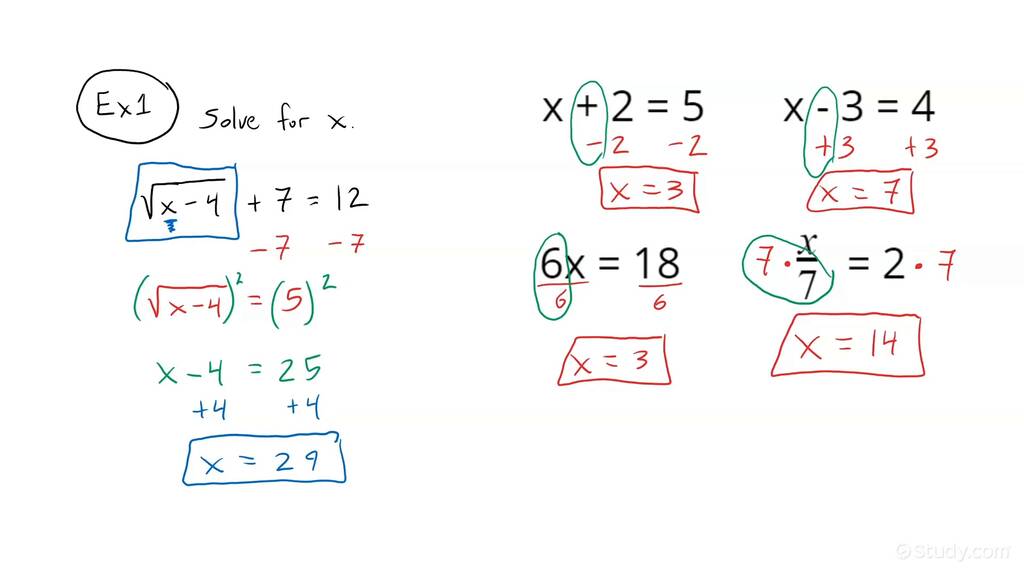 Ex1 Solve for x.
√(x - 4) + 7 = 12
-7 -7
(√(x - 4))² = (5)²
x - 4 = 25
+4 +4
x = 29
x + 2 = 5
-2 -2
x = 3
x - 3 = 4
+3 +3
x = 7
6x = 18
6 6
x = 3
7 · x/7 = 2 · 7
x = 14
©Study.com